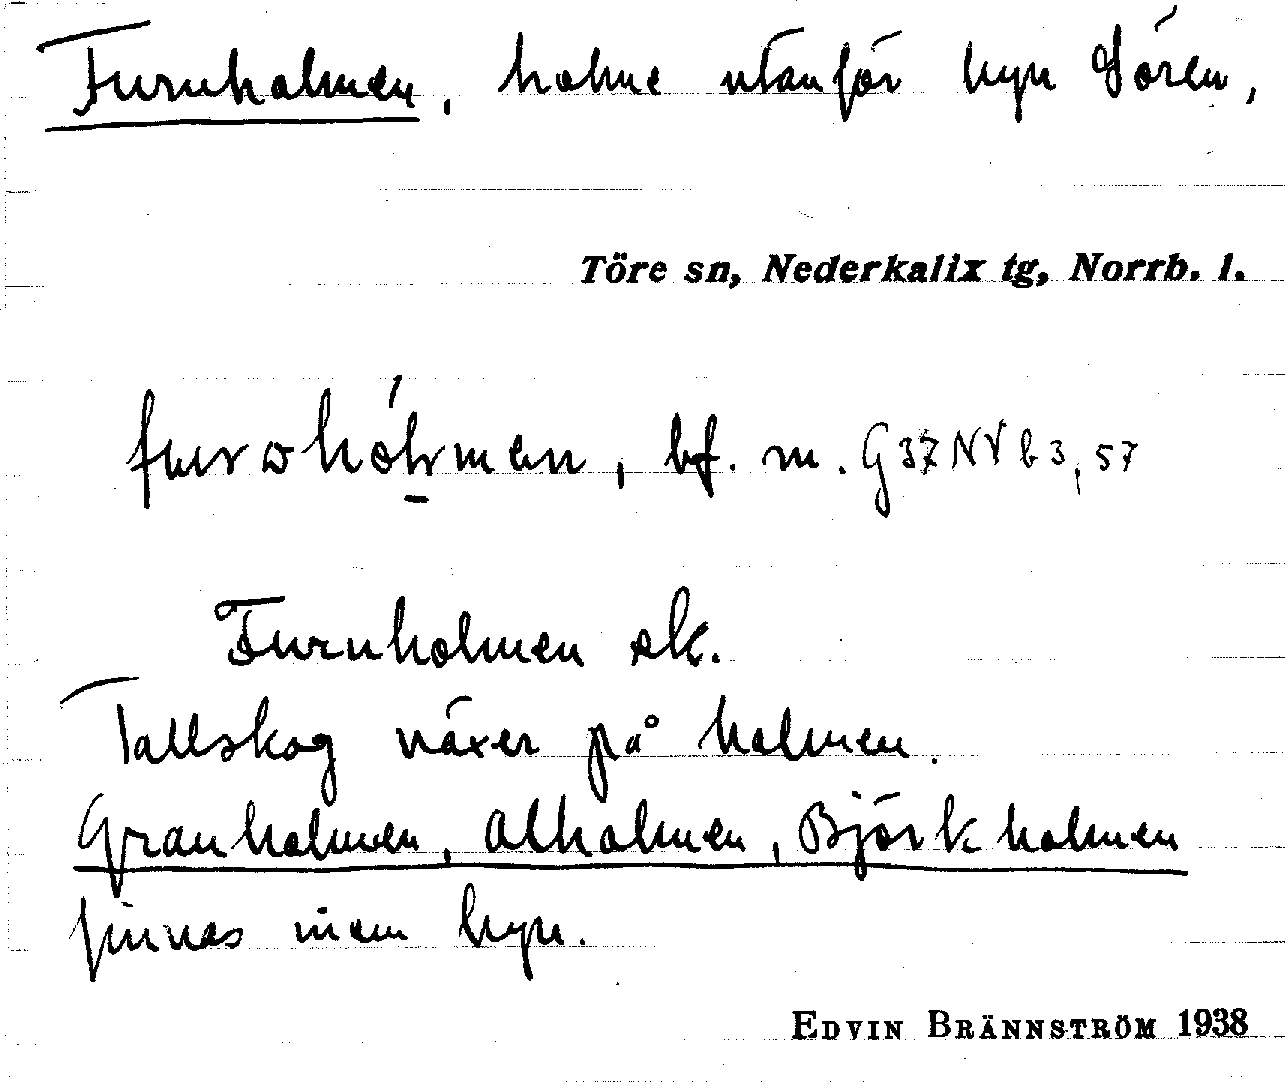 Furuholmen, holme utanför byn Sören,
Töre sn, Nederkalix tg, Norrb. l.
bf. m. G 37 NVb 3, 57
Furuholmen ek.
Tallskog växer på holmen.
Granholmen, Alholmen, Björkholmen
finnas inom byn.
EDVIN BRÄNNSTRÖM 1938